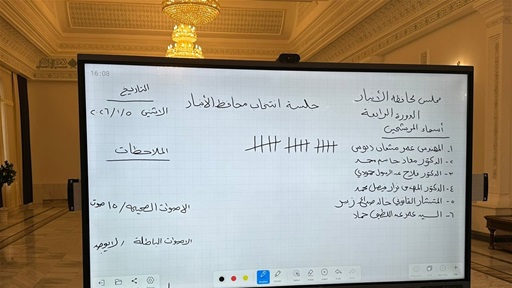 16:08
مجلس محافظة الأنبار
الدورة الرابعة
أسماء المرشحين
١. المهندس عمر مشعان دبوس
٢. الدكتور معاذ جاسم محمد
٣. الدكتور فلاح عبد
٤. الدكتور المهندس نزار فيصل محمد
٥. المستشار القانوني خالد
٦. السيد عمر عبد اللطيف حماد
جلسة انتخاب محافظ الأنبار
التاريخ
الاثنين ٢٠٢٦/١/٥
الملاحظات
الاصوات الصحيحة / ١٥ صوت
الاصوات الباطلة / لا يوجد